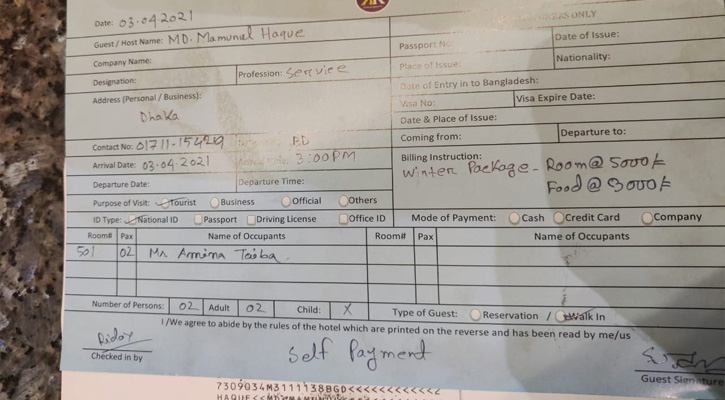 Date: 03.04 2021
Guest / Host Name: MD. Mamunul Haque
Company Name:
Designation: Profession: Service
Address (Personal / Business):
Dhaka
Contact No: BD
Arrival Date: 03.04.2021 3:00PM
Departure Date: Departure Time:
Purpose of Visit: Tourist Business Official Others
ID Type: National ID Passport Driving License Office ID
ONLY
Passport No: Date of Issue:
Place of Issue: Nationality:
Date of Entry in to Bangladesh:
Visa No: Visa Expire Date:
Date & Place of Issue:
Coming from: Departure to:
Billing Instruction:
Winter Package - Room @ 5000/=
Food @ 3000/=
Mode of Payment: Cash Credit Card Company
Room# Pax Name of Occupants Room# Pax Name of Occupants
501 02 Amina Taiba
Number of Persons: 02 Adult 02 Child: X Type of Guest: Reservation / Walk In
I/We agree to abide by the rules of the hotel which are printed on the reverse and has been read by me/us
Ridoy Self Payment
Checked in by Guest Signature
7309034M3111138BGD<<<<<<<<<<<2